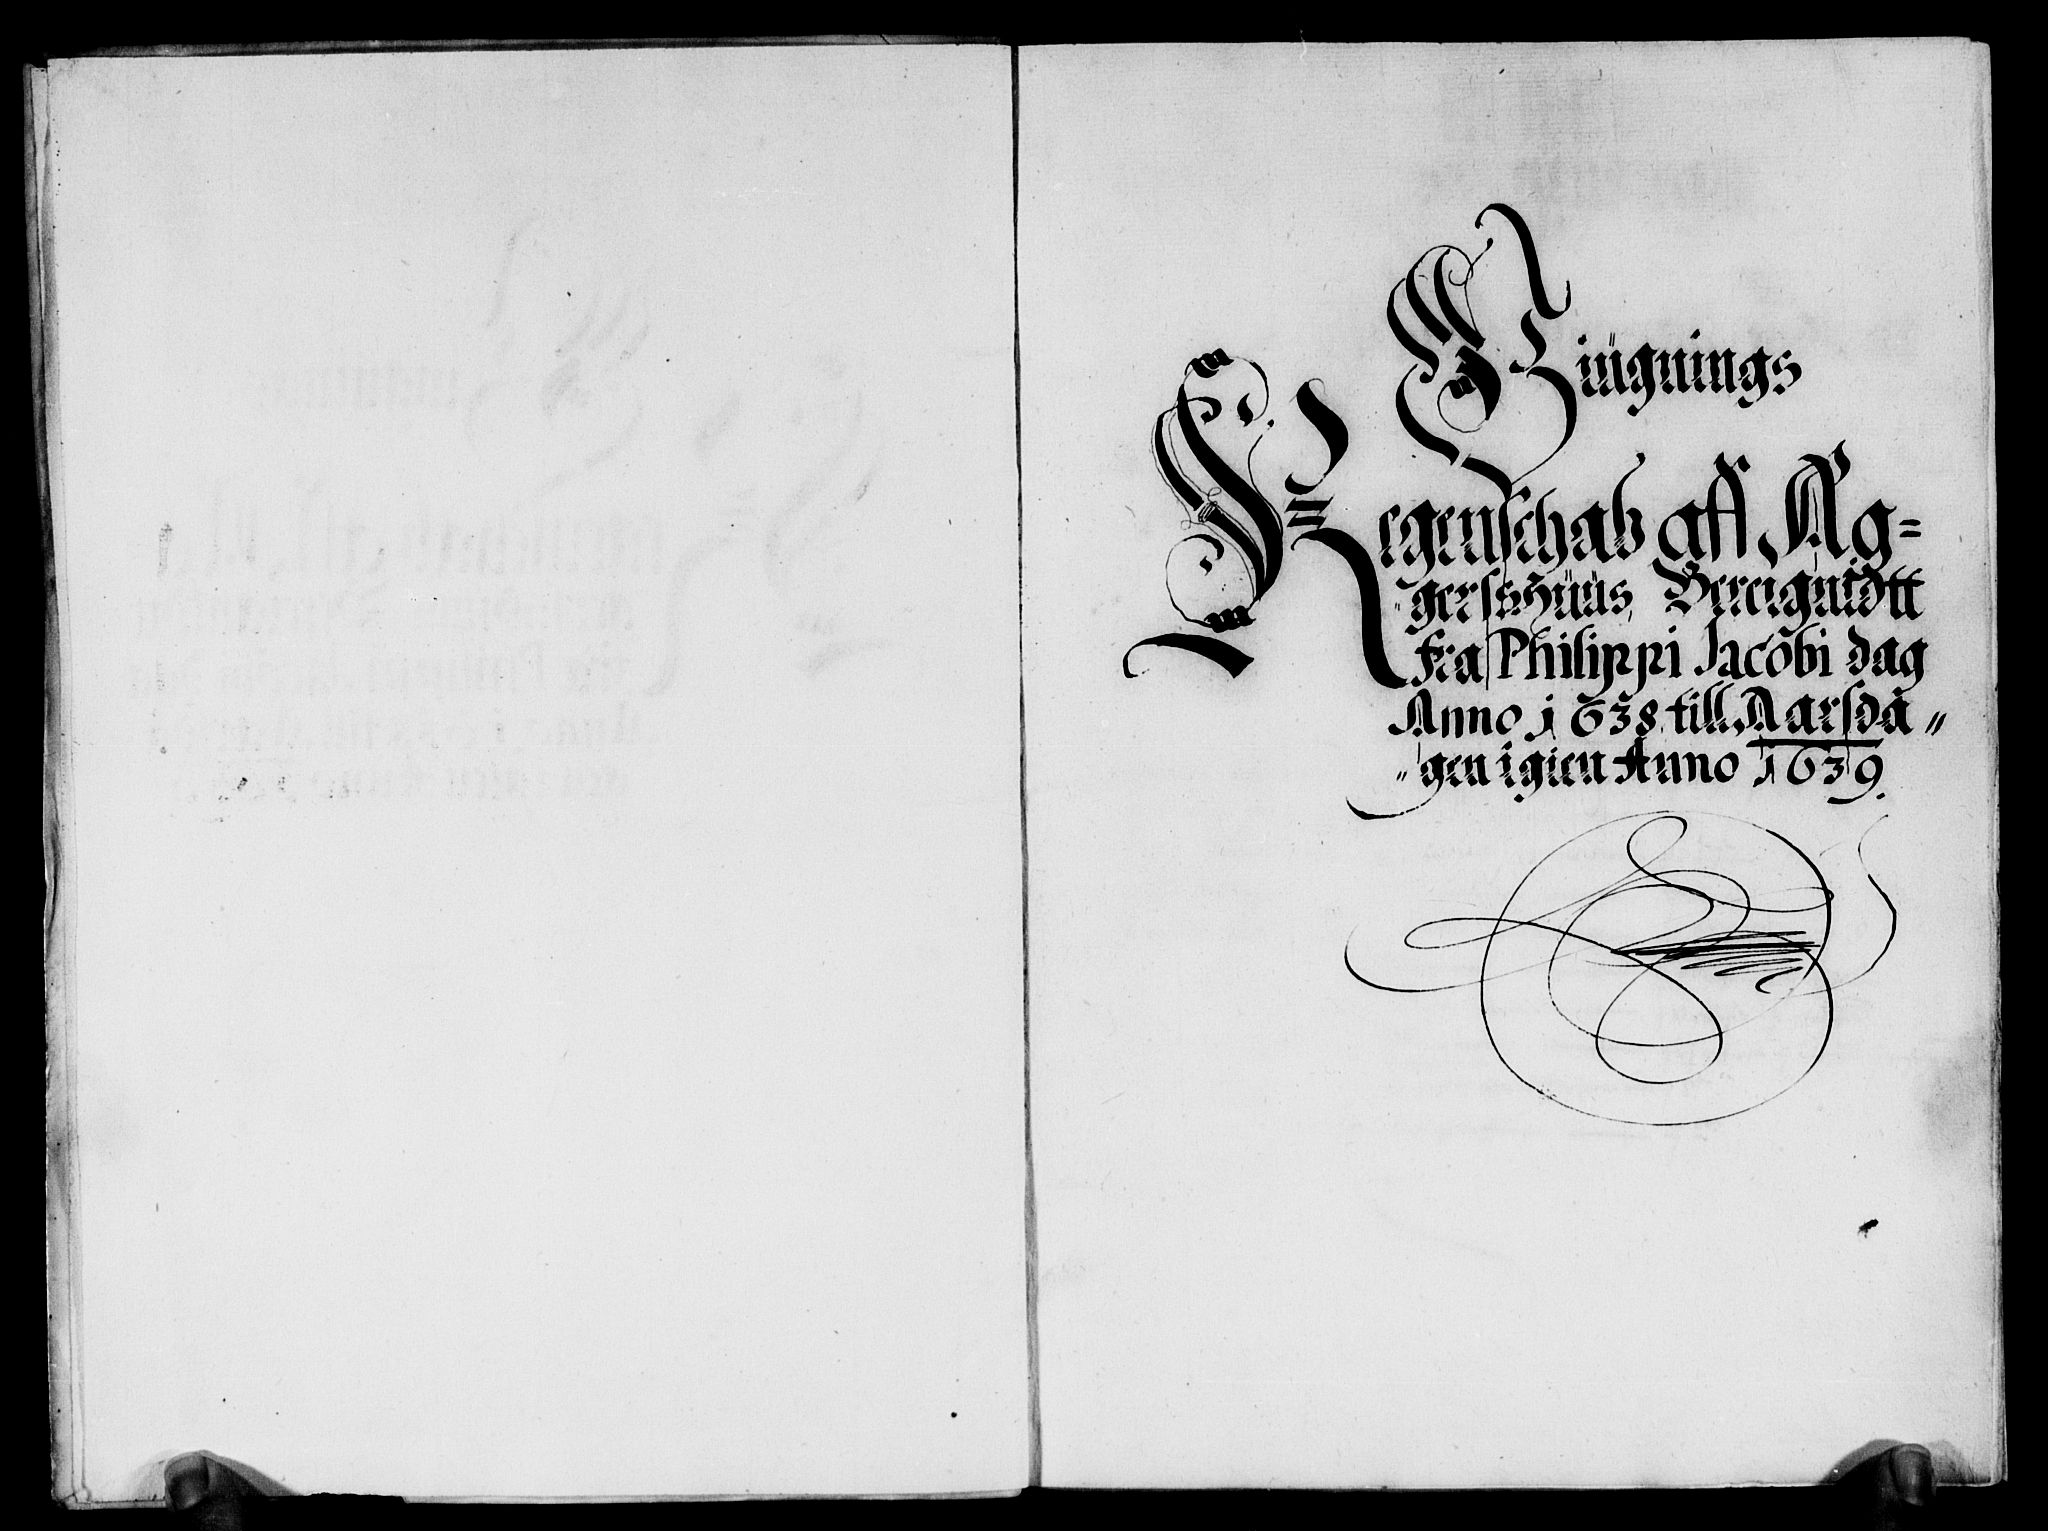 Bÿgnings
Regenschab aff Ag=
"gerszhüüs, Bereignidtt
fra Philippi Jacobi dag
Anno 1638 till Aarsda"
"gen igien Anno 1639.